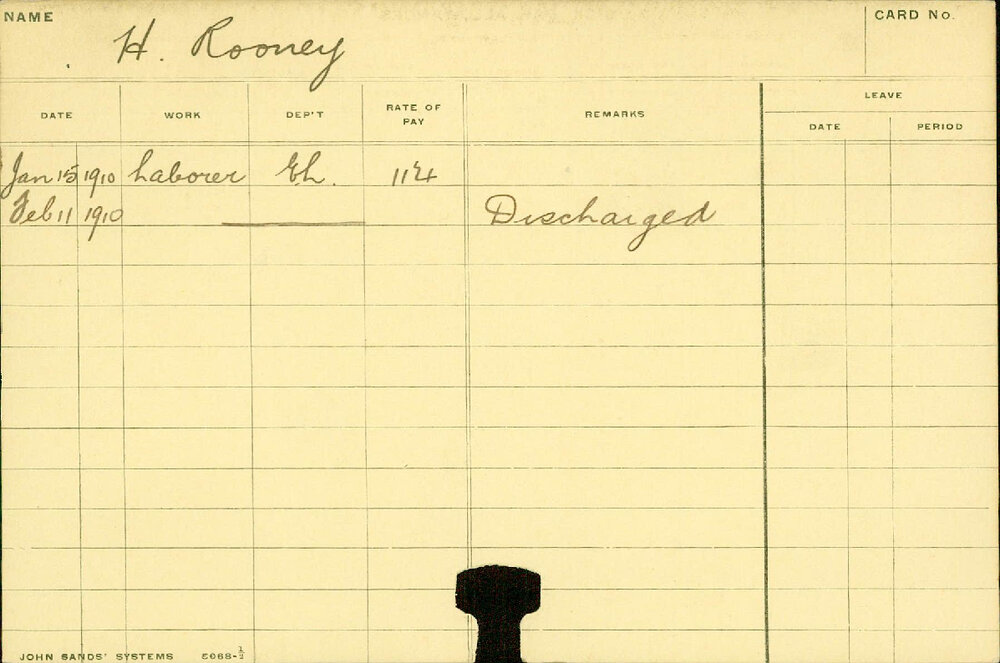 NAME H. Rooney CARD No.
DATE WORK DEP'T RATE OF PAY REMARKS LEAVE
DATE PERIOD
Jan 15 1910 Laborer 11
Feb 11 1910 Discharged
JOHN SANDS' SYSTEMS